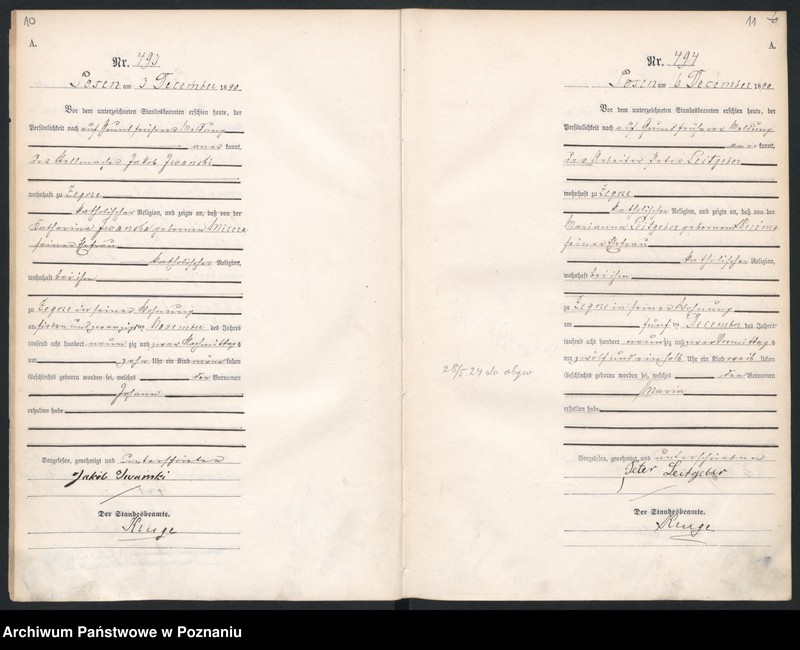 10
A.
Nr. 493
Posen am 3 December 1890
Vor dem unterzeichneten Standesbeamten erschien heute, der
Persönlichkeit nach auf Grund früherer Meldung
kannt,
Jakob Iwanski
wohnhaft zu Zegrze
katholischer Religion, und zeigte an, daß von der
Katharina Iwanska geborenen
seiner Ehefrau
katholischer Religion,
wohnhaft bei ihm
zu Zegrze in seiner Wohnung
am sieben und zwanzigsten November des Jahres
tausend acht hundert neunzig und zwar Nachmittags
um zehn Uhr ein Kind männlichen
Geschlechts geboren worden sei, welches den Vornamen
Johann
erhalten habe
Vorgelesen, genehmigt und unterschrieben
Jakób Iwański
Der Standesbeamte.
28/5 24 do
11
A.
Nr. 494
Posen am 6 December 1890
Vor dem unterzeichneten Standesbeamten erschien heute, der
Persönlichkeit nach auf Grund früherer Meldung
kannt,
der Arbeiter Peter Leitgeber
wohnhaft zu Zegrze
katholischer Religion, und zeigte an, daß von der
Marianna Leitgeber geborenen
seiner Ehefrau
katholischer Religion,
wohnhaft bei ihm
zu Zegrze in seiner Wohnung
am fünften December des Jahres
tausend acht hundert neunzig und zwar Vormittags
um zwölf und ein halb Uhr ein Kind weiblichen
Geschlechts geboren worden sei, welches den Vornamen
Maria
erhalten habe
Vorgelesen, genehmigt und unterschrieben
Peter Leitgeber
Der Standesbeamte.
Archiwum Państwowe w Poznaniu